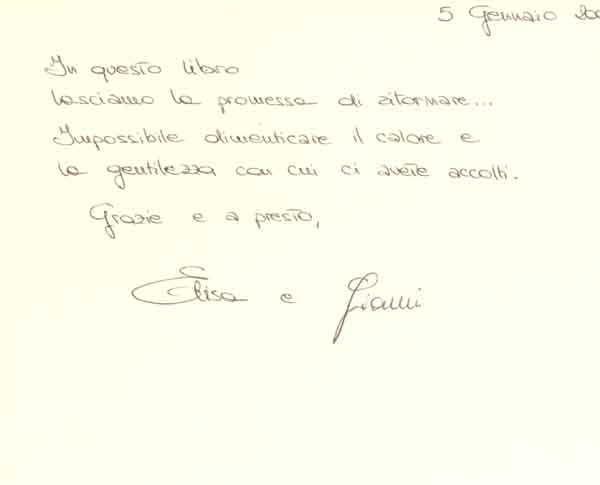 5 Gennaio 200
In questo libro
lasciamo la promessa di ritornare...
Impossibile dimenticare il calore e
la gentilezza con cui ci avete accolti.
Grazie e a presto,
Elisa e Gianni